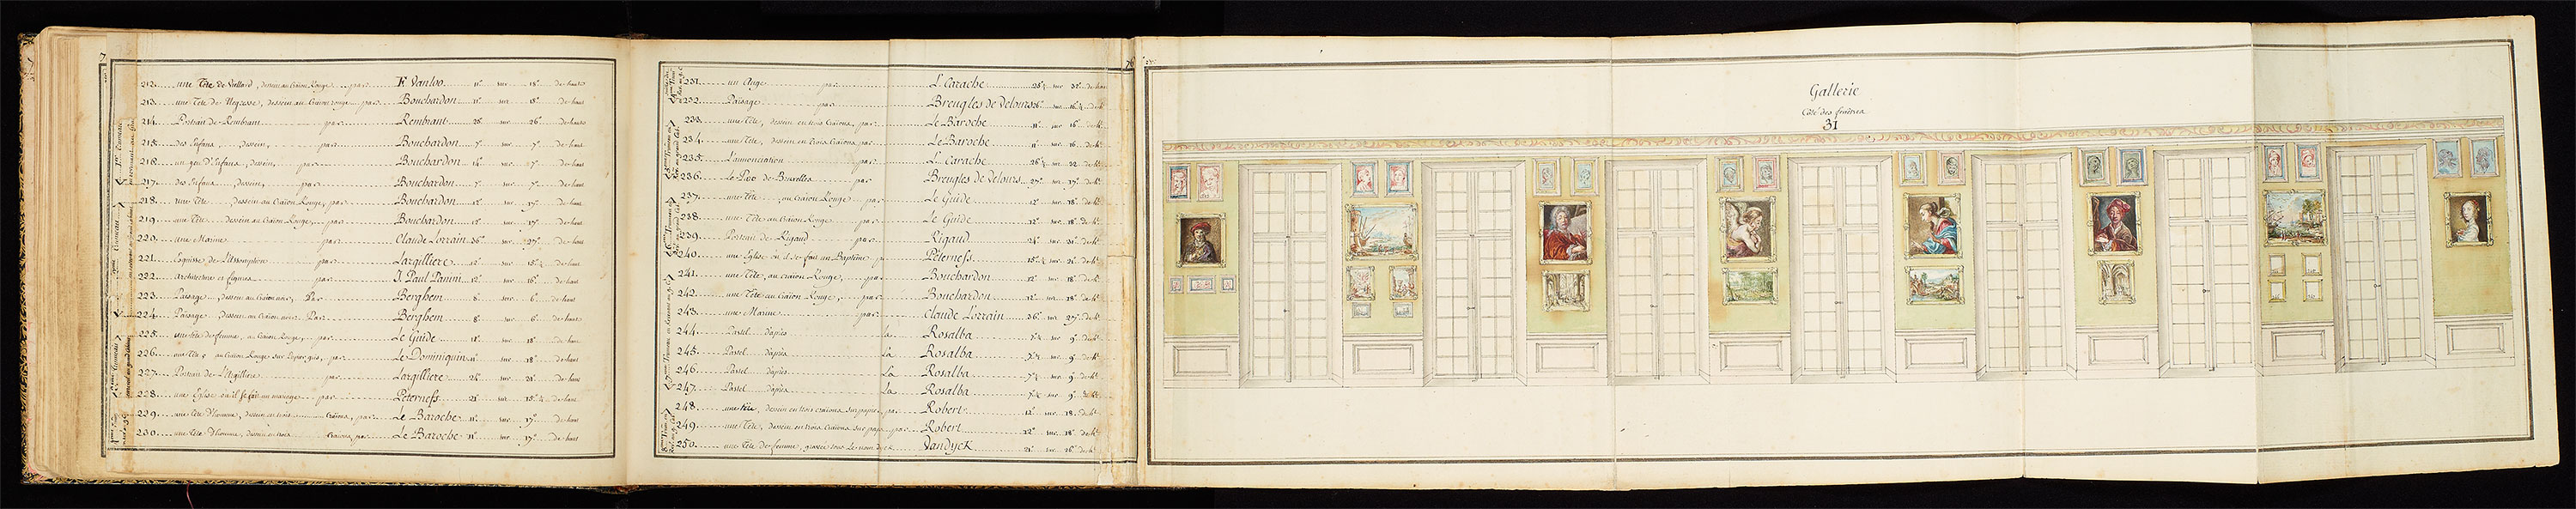 212 une Tête de Viellard, dessein au craion Rouge par F. Vanloo 11º sur 18º de haut
213 une Tête de Negresse, dessein au craion rouge par Bouchardon 12º sur 18º de haut
214 Portrait de Rembrant par Rembrant 28º sur 26º de haut
215 des Enfans, dessein, par Bouchardon 7º sur 7º de haut
216 un jeu d'Enfans, dessein, par Bouchardon 14º sur 7º de haut
217 des Enfans, dessein, par Bouchardon 7º sur 7º de haut
218 une Tête, dessein au craion Rouge, par Bouchardon 12º sur 17º de haut
219 une Tête dessein au craion Rouge, par Bouchardon 12º sur 17º de haut
220 une Marine par Claude Lorrain 36º sur 27º de haut
221 Esquisse de l'Assomption par Largilliere 12º sur 15º de haut
222 architecture et figures par J. Paul Panini 12º sur 16º de haut
223 Paisage, dessein au craion noir, Par Berghem 8º sur 6º de haut
224 Paisage, dessein au craion noir Par Berghem 8º sur 6º de haut
225 une tête de femme, au craion Rouge, par Le Guide 11º sur 18º de haut
226 une Tête au craion Rouge sur papier gris, par Le Dominiquin 11º sur 18º de haut
227 Portrait de L'argilliere par Largilliere 24º sur 31º de haut
228 une Eglise où il se fait un mariage par Péternefs 21º sur 15º de haut
229 une Tête d'homme, dessein en trois craions, par Le Baroche 11º sur 17º de haut
230 une Tête d'homme, dessein en trois craions, par Le Baroche 11º sur 17º de haut
76
231 un Ange par L. Carache sur 31º de haut
232 Paisage par Breugles de Velours sur 16º de ht
233 une Tête, dessein en trois craions, par Le Baroche 11º sur 16º de ht
234 une Tête, dessein en trois craions par Le Baroche 11º sur 16º de ht
235 L'annonciation par L. Carache sur 32 de ht
236 Le Parc de Bruxelles par Breugles de Velours 27º sur 17º de ht
237 une Tête au craion Rouge par Le Guide 12º sur 18º de ht
238 une Tête au craion Rouge par Le Guide 12º sur 18º de ht
239 Portrait de Rigaud par Rigaud 24º sur 31º de ht
240 une Eglise où il se fait un Baptême par Peternefs sur 21º de ht
241 une Tête, au craion Rouge, par Bouchardon 12º sur 18º de ht
242 une Tête au craion Rouge, par Bouchardon 12º sur 18º de ht
243 une Marine par Claude Lorrain 36º sur 27º de ht
244 Pastel d'après La Rosalba sur 9º de ht
245 Pastel d'après La Rosalba sur 9º de ht
246 Pastel d'après La Rosalba sur 9º de ht
247 Pastel d'après La Rosalba sur 9º de ht
248 une tête, dessein en trois craions, sur papier, par Robert 12º sur 18º de ht
249 une Tête, dessein en trois craions sur papier par Robert 12º sur 18º de ht
250 une Tête de femme, gravée sous le nom de Vandyck 21º sur 26º de ht
Gallerie
Côté des fenêtres
31